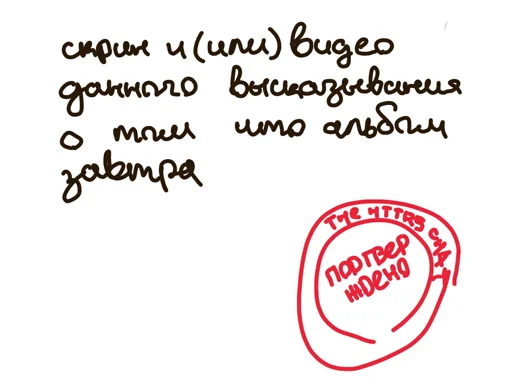 скрин и (или) видео
данного высказывания
о том что альбом
завтра
THE HTTPS CHAT
ПОДТВЕР
ЖДЕНО